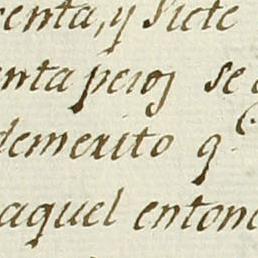 enta, y siete
enta pesos se
demerito q.e
aquel enton